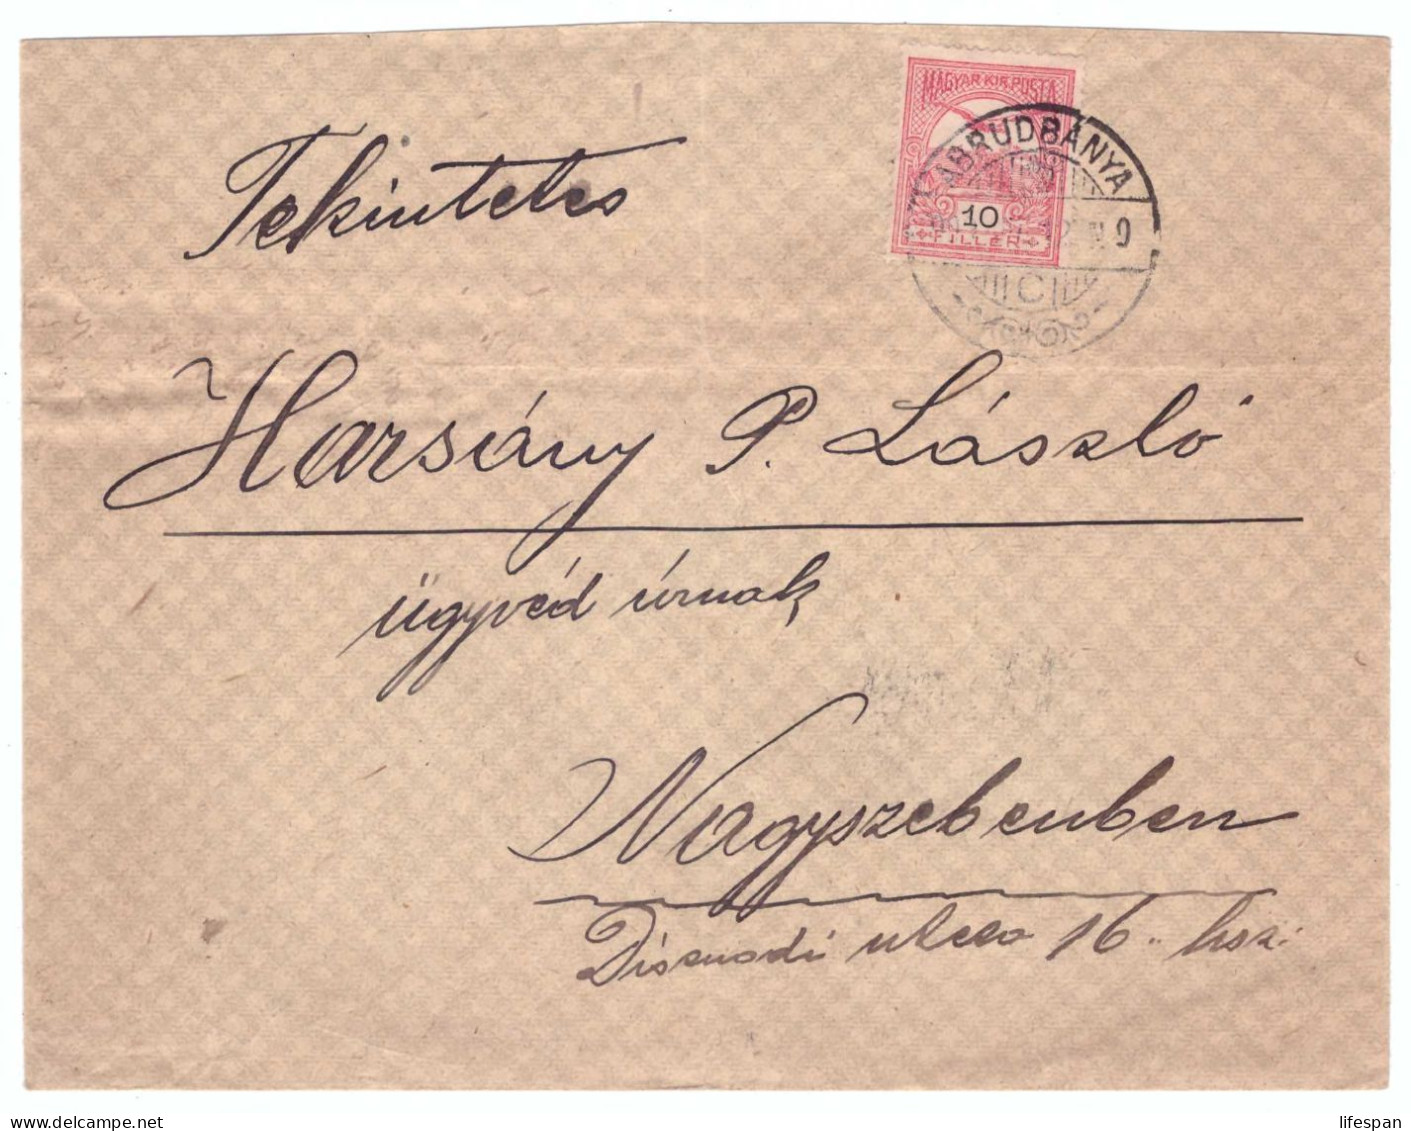 MAGYAR KIR. POSTA
10
FILLÉR
ABRUDBÁNYA
9
C
Tekintetes
Harsány P. László
ügyvéd úrnak,
Nagyszebenben
Disznódi utcza 16.. hsz.
delcampe.net
lifespan